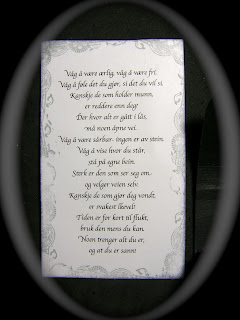 Våg å være ærlig, våg å være fri!
Våg å føle det du gjør, si det du vil si.
Kanskje de som holder munn,
er reddere enn deg?
Der hvor alt er gått i lås,
må noen åpne vei.
Våg å være sårbar- ingen er av stein.
Våg å vise hvor du står,
stå på egne bein.
Sterk er den som ser seg om,
og velger veien selv.
Kanskje de som gjør deg vondt,
er svakest likevel?
Tiden er for kort til flukt,
bruk den mens du kan.
Noen trenger alt du er,
og at du er sann!